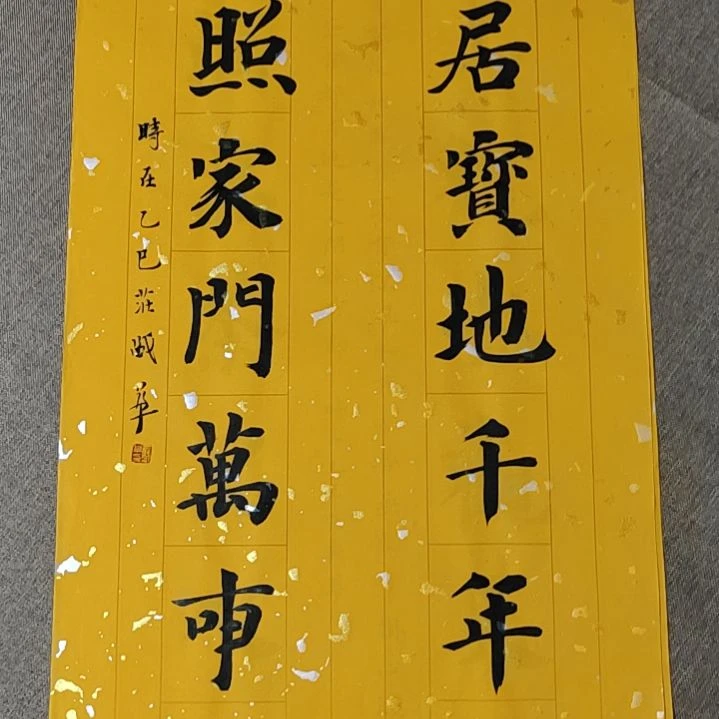 居寶地千年
照家門萬事
時在乙巳莊華